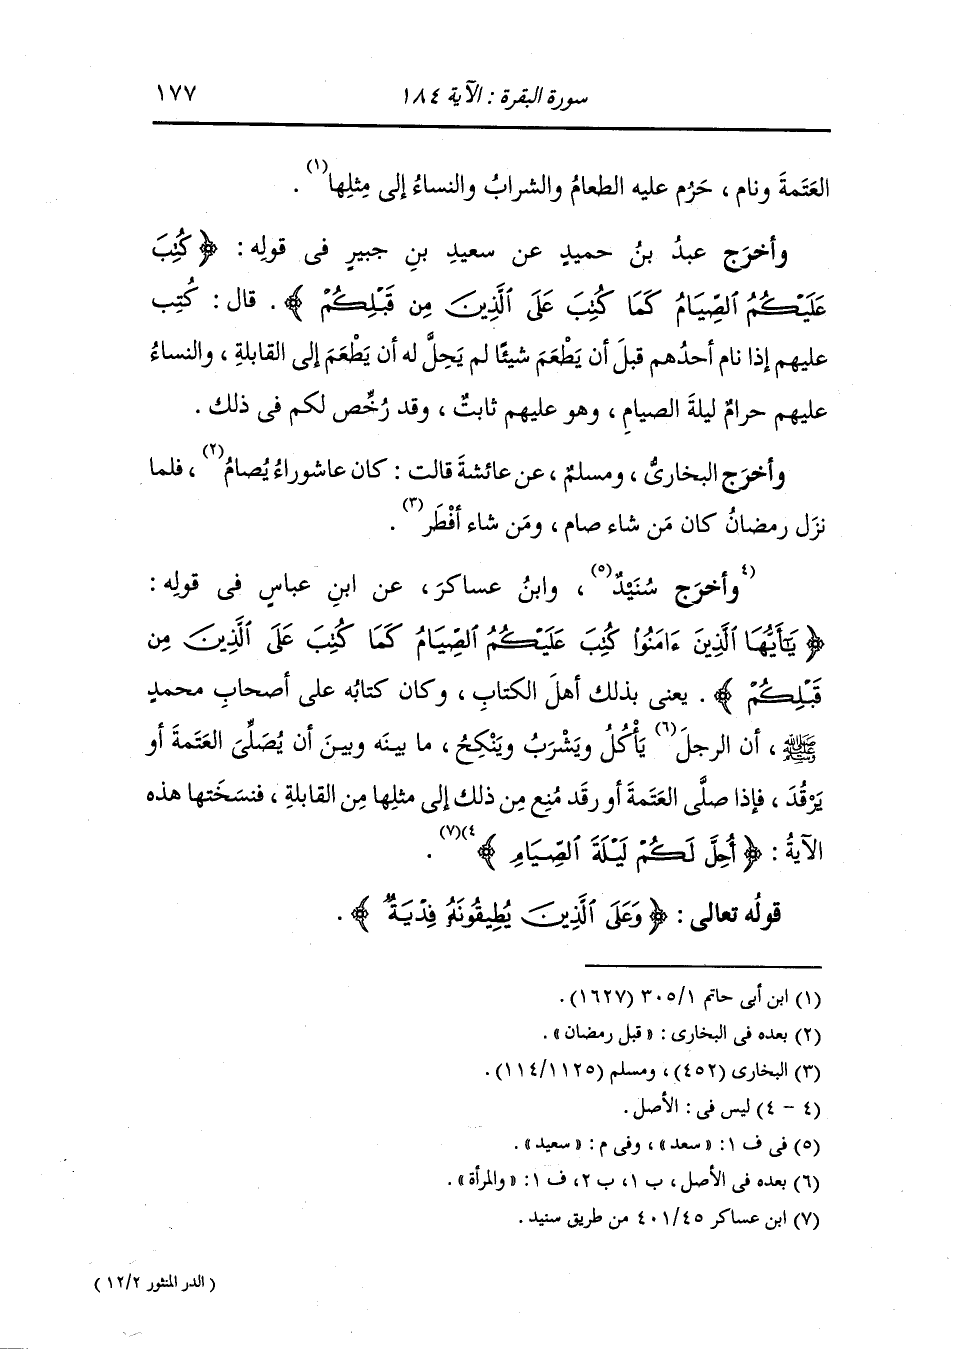 سورة البقرة : الآية ١٨٤ ١٧٧
العَتَمةَ ونام ، حَرُم عليه الطعامُ والشرابُ والنساءُ إلى مِثلِها(١) .
وأخرَج عبدُ بنُ حميدٍ عن سعيدِ بنِ جبيرٍ فى قولِه : ﴿ كُتِبَ
عَلَيْكُمُ ٱلصِّيَامُ كَمَا كُتِبَ عَلَى ٱلَّذِينَ مِن قَبْلِكُمْ ﴾ . قال : كُتِب
عليهم إذا نام أحدُهم قبلَ أن يَطْعَمَ شيئًا لم يَحِلَّ له أن يَطْعَمَ إلى القابلةِ ، والنساءُ
عليهم حرامٌ ليلةَ الصيامِ ، وهو عليهم ثابتٌ ، وقد رُخِّص لكم فى ذلك .
وأخرَج البخارىُّ ، ومسلمٌ ، عن عائشةَ قالت : كان عاشوراءُ يُصامُ(٢) ، فلما
نزَل رمضانُ كان مَن شاء صام ، ومَن شاء أفْطَر(٣) .
(٤وأخرَج سُنَيْدٌ(٥) ، وابنُ عساكرَ ، عن ابنِ عباسٍ فى قولِه :
﴿ يَـٰٓأَيُّهَا ٱلَّذِينَ ءَامَنُوا۟ كُتِبَ عَلَيْكُمُ ٱلصِّيَامُ كَمَا كُتِبَ عَلَى ٱلَّذِينَ مِن
قَبْلِكُمْ ﴾ . يعنى بذلك أهلَ الكتابِ ، وكان كتابُه على أصحابِ محمدٍ
ﷺ ، أن الرجلَ(٦) يَأْكُلُ ويَشْرَبُ ويَنْكِحُ ، ما بينَه وبينَ أن يُصَلِّىَ العَتَمةَ أو
يَرْقُدَ ، فإذا صلَّى العَتَمةَ أو رقَد مُنِع مِن ذلك إلى مثلِها مِن القابلةِ ، فنسَخَتها هذه
الآيةُ : ﴿ أُحِلَّ لَكُمْ لَيْلَةَ ٱلصِّيَامِ ﴾٤)(٧) .
قولُه تعالى : ﴿ وَعَلَى ٱلَّذِينَ يُطِيقُونَهُۥ فِدْيَةٌ ﴾ .
(١) ابن أبى حاتم ٣٠٥/١ (١٦٢٧) .
(٢) بعده فى البخارى : « قبل رمضان » .
(٣) البخارى (٤٥٢) ، ومسلم (١١٤/١١٢٥) .
(٤ - ٤) ليس فى : الأصل .
(٥) فى ف ١ : « سعد » ، وفى م : « سعيد » .
(٦) بعده فى الأصل ، ب ١ ، ب ٢ ، ف ١ : « والمرأة » .
(٧) ابن عساكر ٤٠١/٤٥ من طريق سنيد .
( الدر المنثور ١٢/٢ )